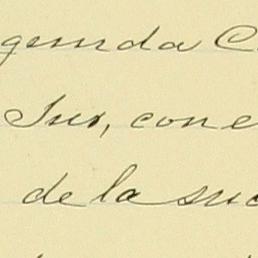 gunda C
Sur, con e
de la suc